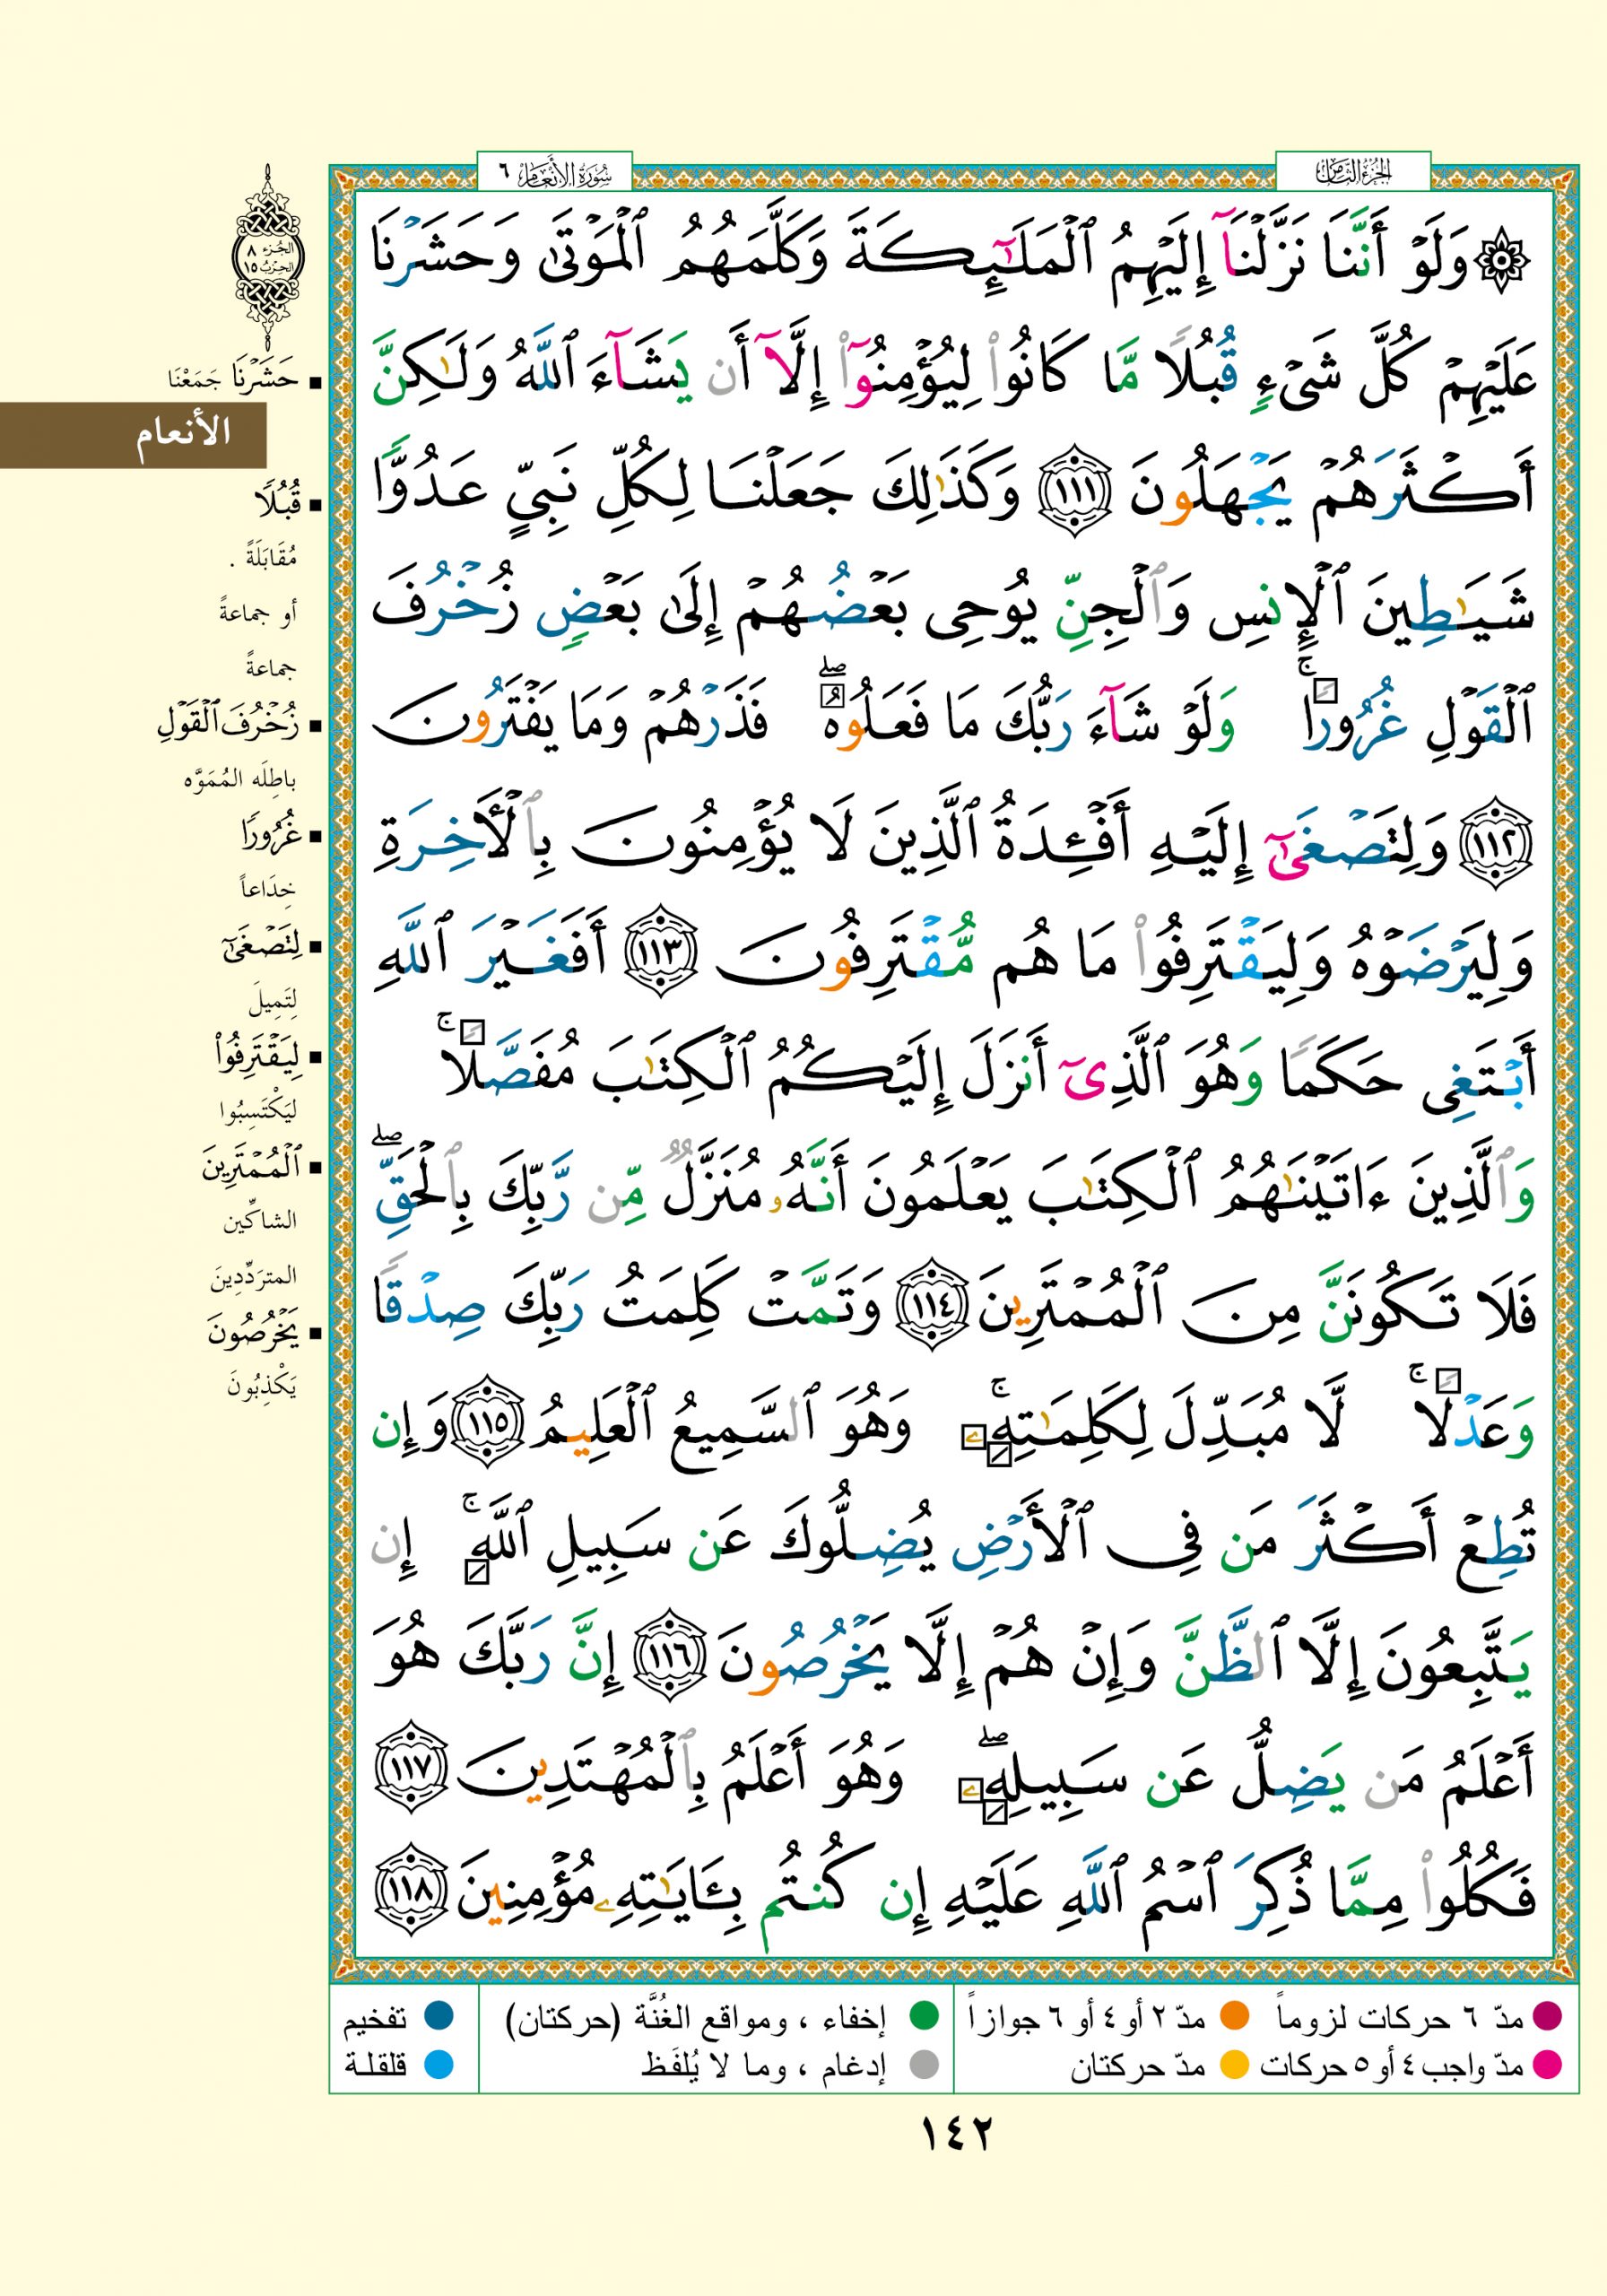 الجزء الثامن
سورة الأنعام ٦
۞ وَلَوْ أَنَّنَا نَزَّلْنَآ إِلَيْهِمُ ٱلْمَلَٰٓئِكَةَ وَكَلَّمَهُمُ ٱلْمَوْتَىٰ وَحَشَرْنَا
عَلَيْهِمْ كُلَّ شَىْءٍ قُبُلًا مَّا كَانُوا۟ لِيُؤْمِنُوٓا۟ إِلَّآ أَن يَشَآءَ ٱللَّهُ وَلَٰكِنَّ
أَكْثَرَهُمْ يَجْهَلُونَ ١١١ وَكَذَٰلِكَ جَعَلْنَا لِكُلِّ نَبِىٍّ عَدُوًّا
شَيَٰطِينَ ٱلْإِنسِ وَٱلْجِنِّ يُوحِى بَعْضُهُمْ إِلَىٰ بَعْضٍ زُخْرُفَ
ٱلْقَوْلِ غُرُورًا ۚ وَلَوْ شَآءَ رَبُّكَ مَا فَعَلُوهُ ۖ فَذَرْهُمْ وَمَا يَفْتَرُونَ
١١٢ وَلِتَصْغَىٰٓ إِلَيْهِ أَفْـِٔدَةُ ٱلَّذِينَ لَا يُؤْمِنُونَ بِٱلْـَٔاخِرَةِ
وَلِيَرْضَوْهُ وَلِيَقْتَرِفُوا۟ مَا هُم مُّقْتَرِفُونَ ١١٣ أَفَغَيْرَ ٱللَّهِ
أَبْتَغِى حَكَمًا وَهُوَ ٱلَّذِىٓ أَنزَلَ إِلَيْكُمُ ٱلْكِتَٰبَ مُفَصَّلًا ۚ
وَٱلَّذِينَ ءَاتَيْنَٰهُمُ ٱلْكِتَٰبَ يَعْلَمُونَ أَنَّهُۥ مُنَزَّلٌ مِّن رَّبِّكَ بِٱلْحَقِّ ۖ
فَلَا تَكُونَنَّ مِنَ ٱلْمُمْتَرِينَ ١١٤ وَتَمَّتْ كَلِمَتُ رَبِّكَ صِدْقًا
وَعَدْلًا ۚ لَّا مُبَدِّلَ لِكَلِمَٰتِهِۦ ۚ وَهُوَ ٱلسَّمِيعُ ٱلْعَلِيمُ ١١٥ وَإِن
تُطِعْ أَكْثَرَ مَن فِى ٱلْأَرْضِ يُضِلُّوكَ عَن سَبِيلِ ٱللَّهِ ۚ إِن
يَتَّبِعُونَ إِلَّا ٱلظَّنَّ وَإِنْ هُمْ إِلَّا يَخْرُصُونَ ١١٦ إِنَّ رَبَّكَ هُوَ
أَعْلَمُ مَن يَضِلُّ عَن سَبِيلِهِۦ ۖ وَهُوَ أَعْلَمُ بِٱلْمُهْتَدِينَ ١١٧
فَكُلُوا۟ مِمَّا ذُكِرَ ٱسْمُ ٱللَّهِ عَلَيْهِ إِن كُنتُم بِـَٔايَٰتِهِۦ مُؤْمِنِينَ ١١٨
الجزء ٨
الحزب ١٥
حَشَرْنَا جَمَعْنَا
الأنعام
قُبُلًا
مُقَابَلَةً .
أو جماعةً
جماعةً
زُخْرُفَ ٱلْقَوْلِ
باطِلَه المُمَوَّه
غُرُورًا
خِدَاعاً
لِتَصْغَىٰٓ
لِتَمِيلَ
لِيَقْتَرِفُوا۟
ليَكْتَسِبُوا
ٱلْمُمْتَرِينَ
الشاكِّين
المتردِّدِينَ
يَخْرُصُونَ
يَكْذِبُونَ
مدّ ٦ حركات لزوماً
مدّ ٢ أو ٤ أو ٦ جوازاً
مدّ واجب ٤ أو ٥ حركات
مدّ حركتان
إخفاء ، ومواقع الغُنَّة (حركتان)
إدغام ، وما لا يُلفَظ
تفخيم
قلقلة
١٤٢